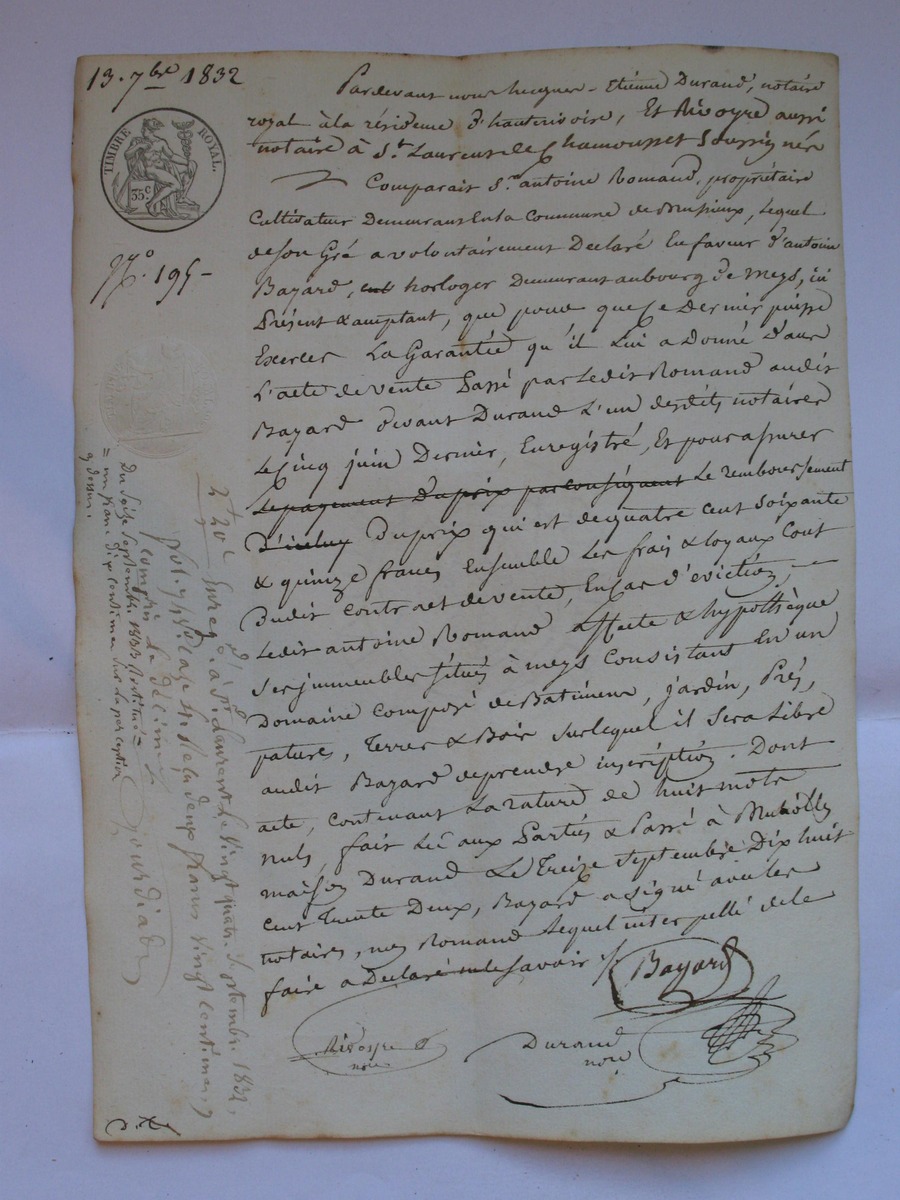 13. 7bre 1832
TIMBRE ROYAL.
35 c
N.o 195 -
Pardevant nous Etienne Durand, notaire
royal à la résidence d'hauterivoire, Et Rivoyre aussi
notaire à St. Laurent de Chamousset Soussignés
Comparait Sr. antoine Romand, propriétaire
Cultivateur Demeurant En la Commune de Brusieux, lequel
de son Gré a volontairement Declaré En faveur d'antoine
Bayard, horloger Demeurant au bourg de Meys, ici
Présent & acceptant, que pour que Ce Dernier puisse
Exercer La Garantie qu'il Lui a Donné Dans
L'acte de vente Passé par Ledit Romand audit
Bayard devant Durand L'un desdits notaires
Le Cinq juin Dernier, Enregistré, Et pour assurer
Le payement Du prix par Conséquent Le remboursement
Du prix qui est de quatre cent soixante
& quinze francs Ensemble Les frais & loyaux Cout
Dudit Contrat de vente, En Cas d'eviction,
Ledit antoine Romand affecte & hypothèque
Ses immeubles Situés à meys Consistant En un
Domaine Composé de Batiments, jardin, Prés,
pature, Terres & Bois Surlequel il sera libre
audit Bayard de prendre inscription. Dont
acte, Contenant La rature de huit mots
nuls, fait Lu aux Parties & Passé à
maison Durand Le Treize Septembre Dix huit
Cent Trente Deux, Bayard a signé avec les
notaires, non Romand Lequel interpellé de le
faire a Declaré ne le Savoir ./.
Bayard
Rivoyre
nore
Durand
nore
2f 20c Enreg.é à St Laurent le vingt quatre Septembre 1832,
fol. Reçu deux francs vingt centimes,
compris le décime
Du Seize Septembre 1833
= un franc dix centimes sur la perception
ci dessus.